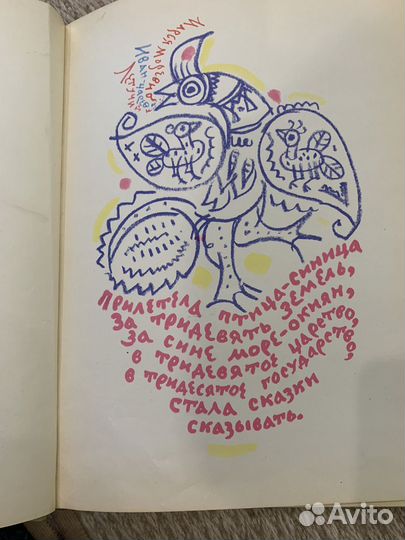 Марья Моревна
Иван-царевич
Летучий
Прилетела птица-синица
за тридевять земель,
за сине море-окиян,
в тридевятое царство,
в тридесятое государство,
стала сказки
сказывать.
Avito